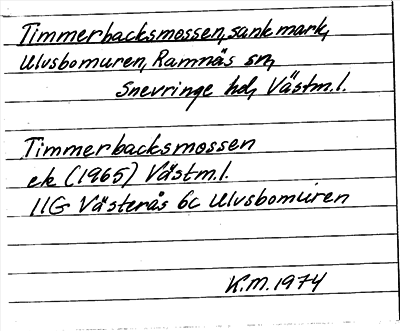 Timmerbacksmossen, sank mark,
Ulvsbomuren, Ramnäs sn,
Snevringe hd, Västm.l.
Timmerbacksmossen
ek (1965) Västm.l.
11G Västerås 6c Ulvsbomuren
K.M. 1974